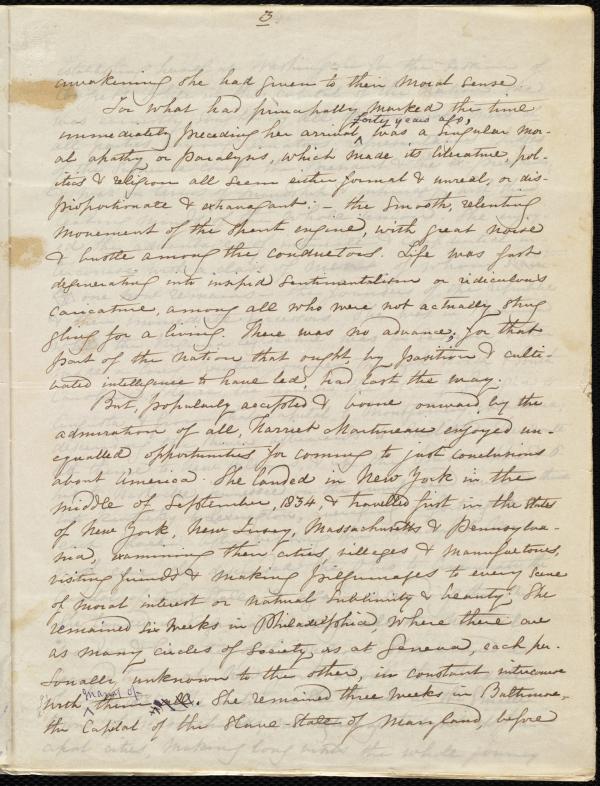 3
awakening she had given to their moral sense
For what had principally marked the time
forty years ago,
immediately preceding her arrival, was a singular mor-
al apathy or paralysis, which made its literature, pol-
itics & religion all seem either formal & unreal, or dis-
proportionate & extravagant: - the smooth, relenting
movement of the spent engine, with great noise
& bustle among the conductors. Life was fast
degenerating into insipid sentimentalism or ridiculous
caricature, among all who were not actually strug
gling for a living. There was no advance; for that
part of the nation that ought by position & culti-
vated intelligence to have led, had lost the way.
But, popularly accepted & borne onward by the
admiration of all, Harriet Martineau enjoyed un-
equalled opportunities for coming to just conclusions
about America. She landed in New York in the
middle of September, 1834, & travelled first in the states
of New York, New Jersey, Massachusetts & Pennsylva-
nia, examining their cities, villages & manufactories,
visiting friends & making pilgrimages to every scene
of moral interest or natural sublimity & beauty. She
remained six weeks in Philadelphia, where there are
as many circles of society as at Geneva, each per-
sonally unknown to the other, in constant intercourse
many of
with them all. She remained three weeks in Baltimore,
the Capital of the slave-state of Maryland, before